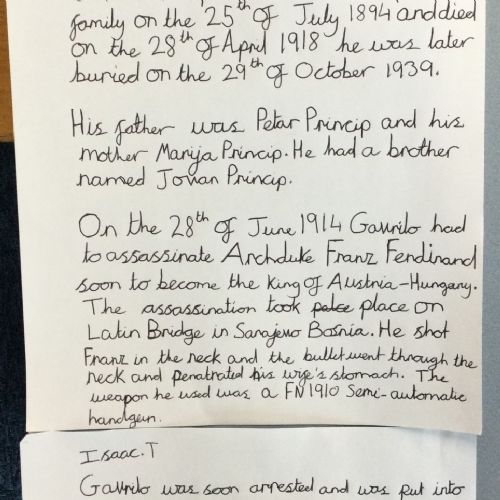 family on the 25th of July 1894 and died
on the 28th of April 1918 he was later
buried on the 29th of October 1939.
His father was Petar Princip and his
mother Marija Princip. He had a brother
named Jovan Princip.
On the 28th of June 1914 Gavrilo had
to assassinate Archduke Franz Ferdinand
soon to become the king of Austria-Hungary.
The assassination took palce place on
Latin Bridge in Sarajevo Bosnia. He shot
Franz in the neck and the bullet went through the
neck and penatrated his wife's stomach. The
weapon he used was a FN1910 Semi-automatic
handgun.
Isaac.T
Gavrilo was soon arrested and was put into